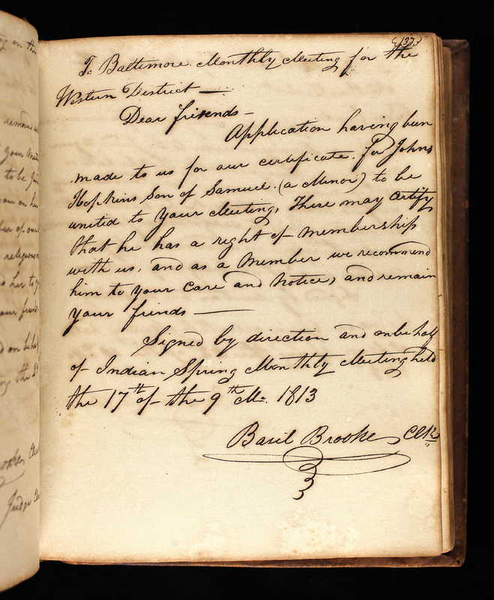 (137)
To Baltimore Monthly Meeting for the
Western District —
Dear friends —
Application having been
made to us for our certificate, for Johns
Hopkins Son of Samuel (a Minor) to be
united to your Meeting, These may certify
that he has a right of membership
with us, and as a Member we recommend
him to your care and notice, and remain
your friends —
Signed by direction and on behalf
of Indian Spring Monthly Meeting held
the 17th of the 9th Mo. 1813
Basil Brooke, Clk